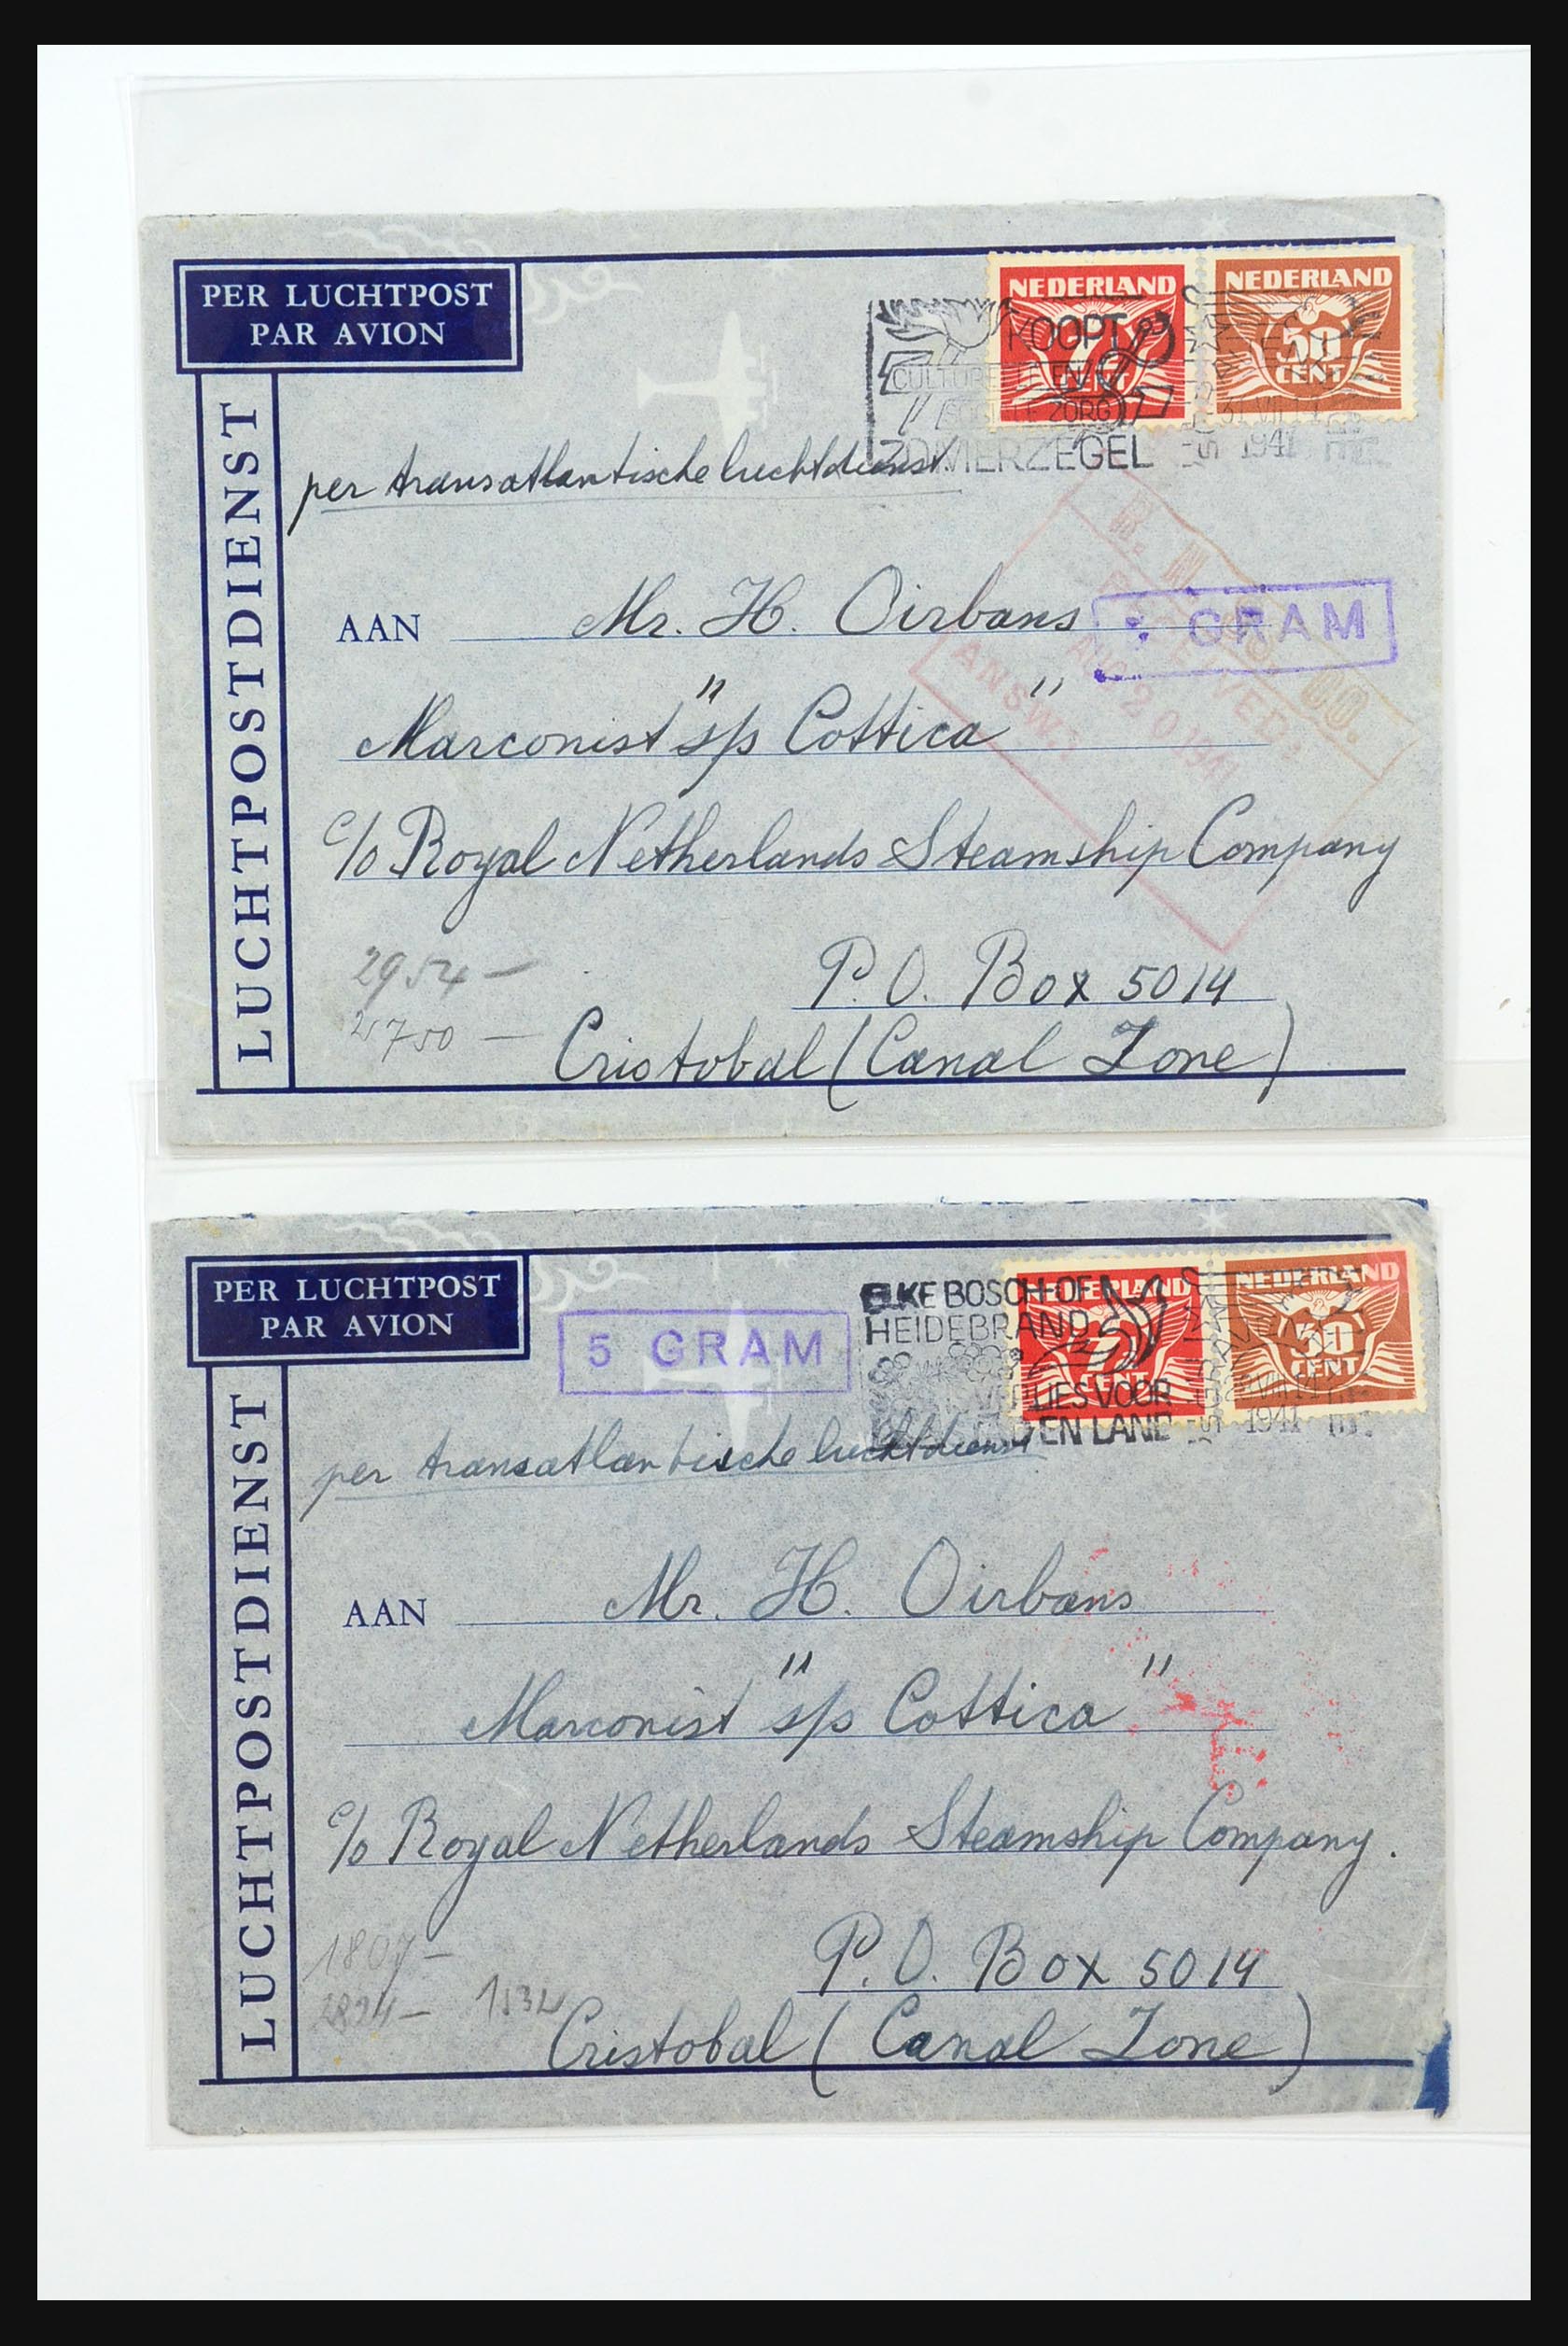 PER LUCHTPOST
PAR AVION
LUCHTPOSTDIENST
NEDERLAND
7½
CENT
NEDERLAND
50
CENT
KOOPT
CULTURELE EN
SOCIALE ZORG
ZOMERZEGEL
1941
per transatlantische luchtdienst
GRAM
CO.
AUG 20 1941
ANSW.:
AAN Mr. H. Oirbans
Marconist "s/s Cottica"
c/o Royal Netherlands Steamship Company
P.O. Box 5014
2954 —
Cristobal (Canal Zone)
PER LUCHTPOST
PAR AVION
LUCHTPOSTDIENST
5 GRAM
NEDERLAND
7½
CENT
NEDERLAND
50
CENT
ELKE BOSCH-OF
HEIDEBRAND
VERLIES VOOR
EN LAND
1941
per transatlantische luchtdienst
AAN Mr. H. Oirbans
Marconist "s/s Cottica"
c/o Royal Netherlands Steamship Company.
P.O. Box 5014
1807 —
2824 —
Cristobal (Canal Zone)